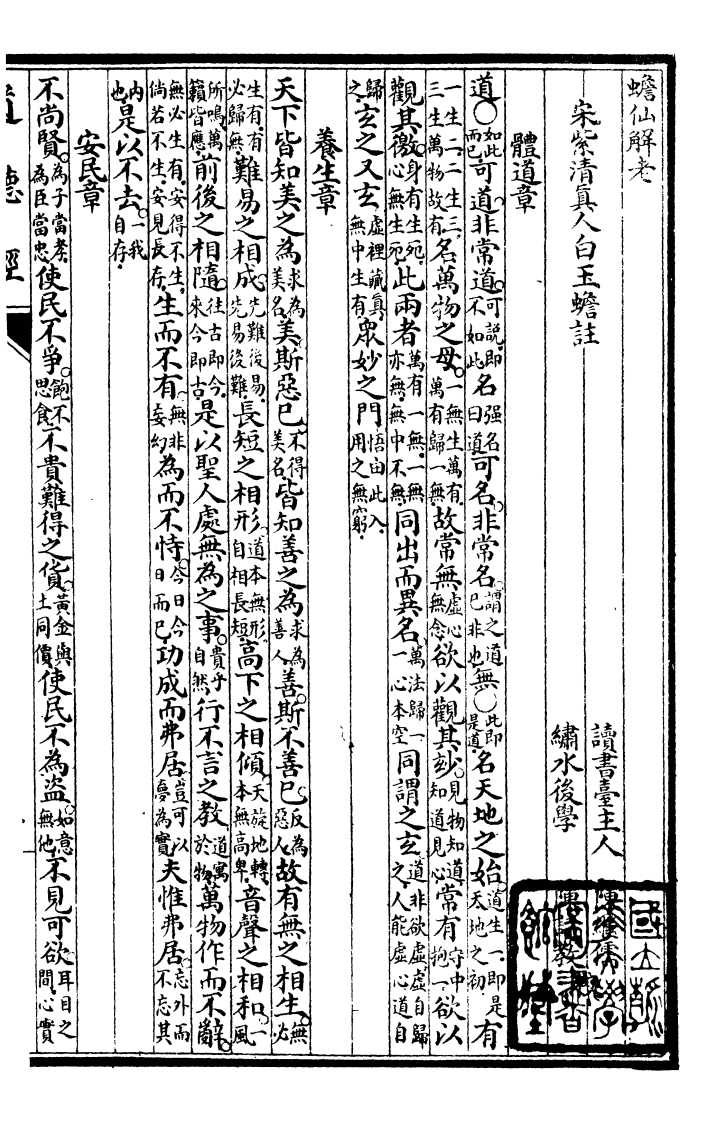 蟾仙解老
宋紫清真人白玉蟾註
讀書臺主人
繡水後學
體道章
道○如此而已可道非常道可說即不如此名强名曰道可名非常名謂之道已非也無○此即是道名天地之始道生一即是天地之初有
一生二二生三三生萬物故有名萬物之母一無生萬有萬有歸一無故常無虛心無念欲以觀其玅見物知道知道見心常有守中抱一欲以
觀其徼身有生死心無生死此兩者萬有一無一無亦無無中不無同出而異名萬法歸一一心本空同謂之玄道非欲虛虛自歸之人能虛心道自
歸之玄之又玄虛裡藏真無中生有衆妙之門悟由此入用之無窮
養生章
天下皆知美之為求為美名美斯惡已不得美名皆知善之為求為善人善斯不善已反為惡人故有無之相生無必
生有有必歸無難易之相成先難後易先易後難長短之相形道本無形自相長短高下之相傾天旋地轉本無高卑音聲之相和一風
所鳴萬籟皆應前後之相隨往古即今來今即古是以聖人處無為之事貴乎自然行不言之教道寓於物萬物作而不辭
無必生有安得不生倘若不生安見長存生而不有無非妄幻為而不恃今日今日而已功成而弗居豈可以夢為實夫惟弗居忘外而不忘其
內也是以不去一我自存
安民章
不尚賢為子當孝為臣當忠使民不爭飽不思食不貴難得之貨黃金與土同價使民不為盜如意無他不見可欲耳目之間心實
道德經